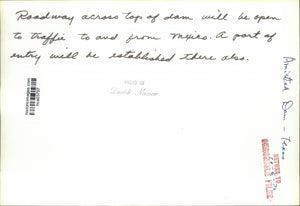 Roadway across top of dam will be open
to traffic to and from Mexico. A port of
entry will be established there also.
Amistad Dam - Texas
PHOTO BY
RETURN TO